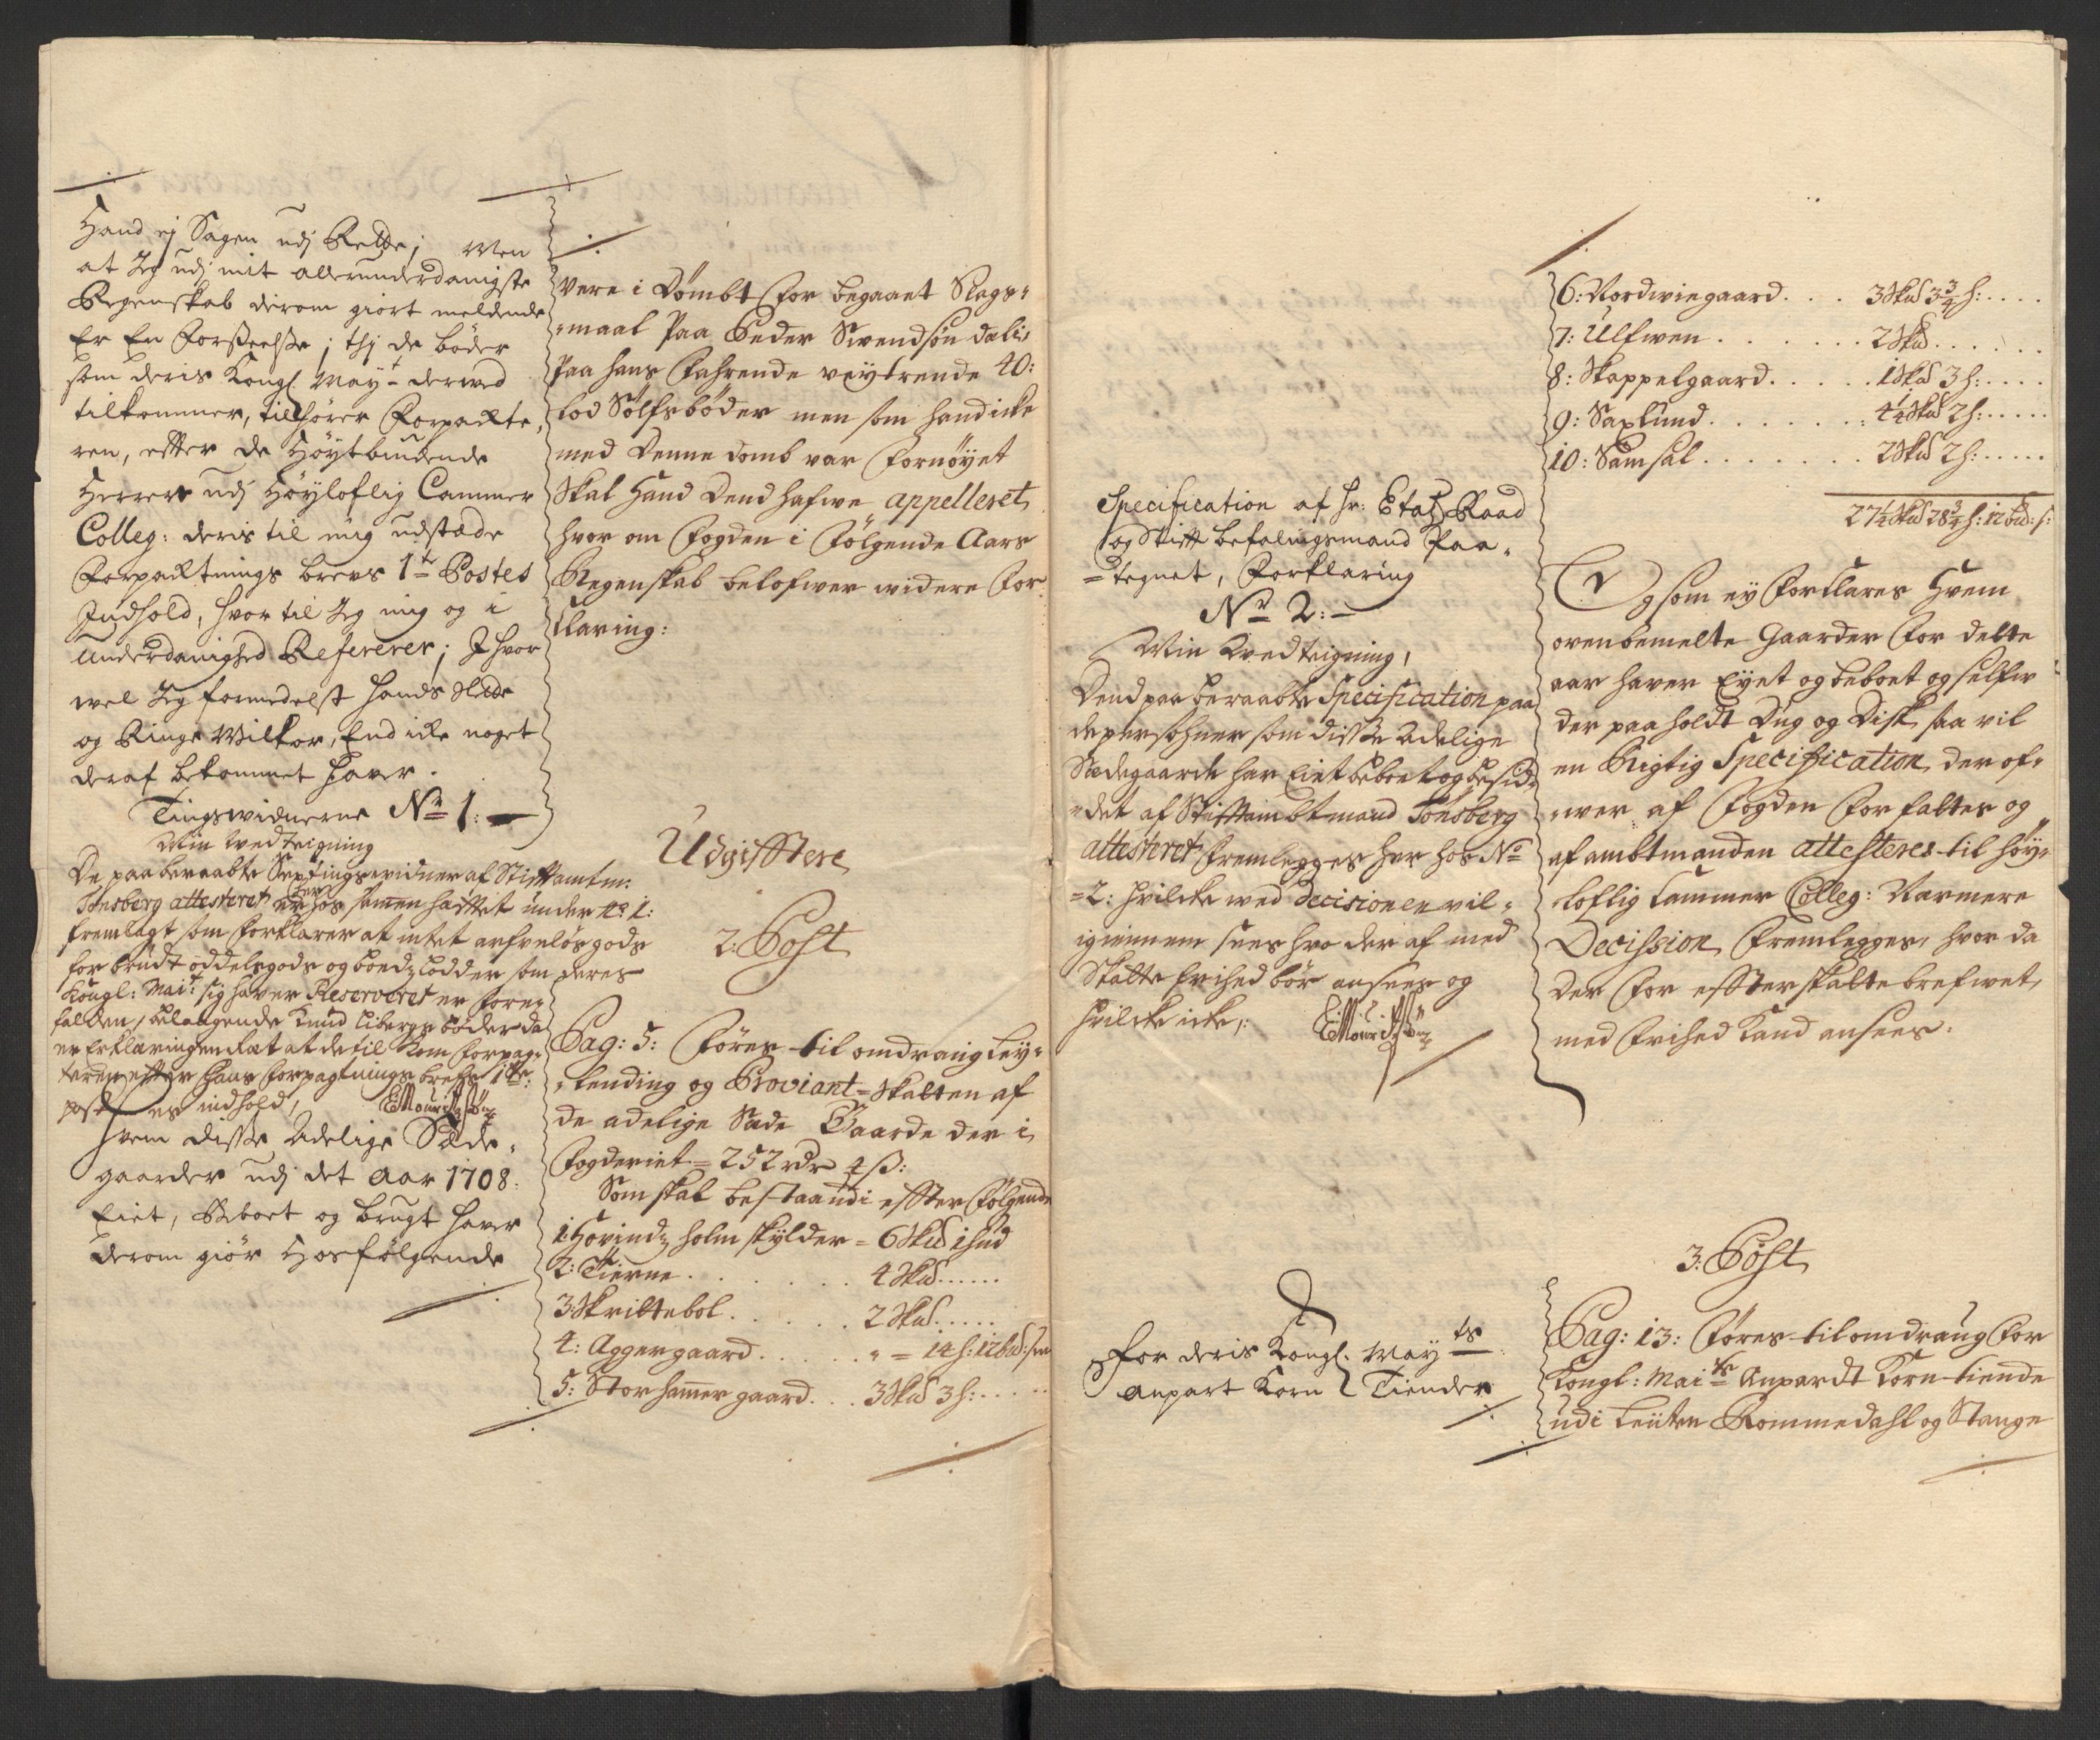 Hand ej Sagen udj Rette; Men
at Jeg udj mit allerunderdanigste
Regenskab derom giort meldende
Er En Forseelse; thj de bøder
som deris Kongl. May:t derved
tilkommer, tilhører Forpackte,
ren, efter de Høytbiudende
Herrers udj Høyloflig Cammer
Colleg: deris til mig udstæde
Forpacktnings brevs 1te Postes
Indhold, hvor til Jeg mig og i
underdanighed Refererer; Ihvor
wel Jeg formedelst hands
og Ringe Wilkor, End icke noget
deraf bekommet haver.
Tingswidnerne No 1:
Min Wedteigning
De paaberaabte Sextingswidner af Stiftamtm:
Tonsberg attesteret er her hos sammen hæftet under No 1:
fremlagt som forklarer at intet arfveløs gods
for brudt oddelsgods og boedz lodder som deres
Kongl: Mai:t sig haver Reserveret er fore,
falden, belangende Knud Libergs bøder da
er Erklæringen Ræt at de til Kom Forpag,
teren efter hans Forpagtnings brefs 1te
postes indhold, EMouritzsøn
Hvem disse Adelige Sæde,
gaarder udj det Aar 1708.
Eiet, Beboet og brugt haver
derom giør Hosfølgende
være i Dømbt for begaaet Slags,
maal Paa Peder Swendsøn dæli,
Paa hans Fahrende veytrende 40:
lod Sølfs bøder men som hand icke
med Denne domb var fornøyet
Skal Hand Dend hafwe appelleret
hvor om Fogden i Følgende Aars
Regenskab belofwer widere For
klaring:
Udgifftere
2: Post
Pag: 5: Føres til omdraug Ley,
lending og Proviant-Skatten af
de adelige Sæde Gaarde der i
Fogderiet = 252 rdr 4 ß:
Som skal bestaa udi effter Følgende
1: Hovindz holm skylder = 6 Skud 1 hud
2: Tierne . . . . . . 4 Skud . . . . .
3: Skrittebol . . . . . 2 Skud . . . . .
4: Aggergaard . . . . . " = 14 h: 12 bd: sm
5: Storhamer gaard . . . 3 Skud 3 h: . . . . .
Specification af Hr: Etatz Raad
og Stifft befalingsmand Paa,
tegnet, Forklaring
No 2:
Min Wedteigning,
Dend paaberaabte Specification paa
de persohner som disse Adelige
Sædegaarde har Eiet beboet og besid,
det af Stifftamtmand Tonsberg
attesteret Fremlegges her hos No
2: hvilcke wed Decisionen vil,
igiennem sees hvo der af med
Skatte frihed bør ansees og
hvilcke icke,: EMouritzsøn
For deris Kongl. May ts
anpart Korn Tiender
6: Nordviegaard . . . 3 Skud 3 3/4 h: . . . .
7: Ulfwen . . . . . . 2 Skud . . . . . .
8: Skappelgaard . . . . . 1 Skud 3 h: . . . .
9: Saxlund . . . . . . . 4 1/4 Skud 2 h: . . . . .
10: Samsal . . . . . . . 2 Skud 2 h: . . . . .
27 1/4 Skud 28 3/4 h: 12 bd: s:
Og som ey Forklares Hvem
ovenbemelte Gaarder For dette
aar haver Eyet og beboet og selfw
der paa holdt Dug og Disk, saa vil
en Rigtig Specification, der of,
wer af Fogden For fattes og
af ambtmanden attesteres til Høy,
loflig Cammer Colleg: Narmere
Decission Fremlegges, hvor da
der For effter Skattebrefwet,
med Frihed Kand ansees.
3: Post
Pag: 13: Føres til omdraug For
Kongl: Mai ts Anpardt Korn-tiende
udi Leuten Rommedahl og Stange